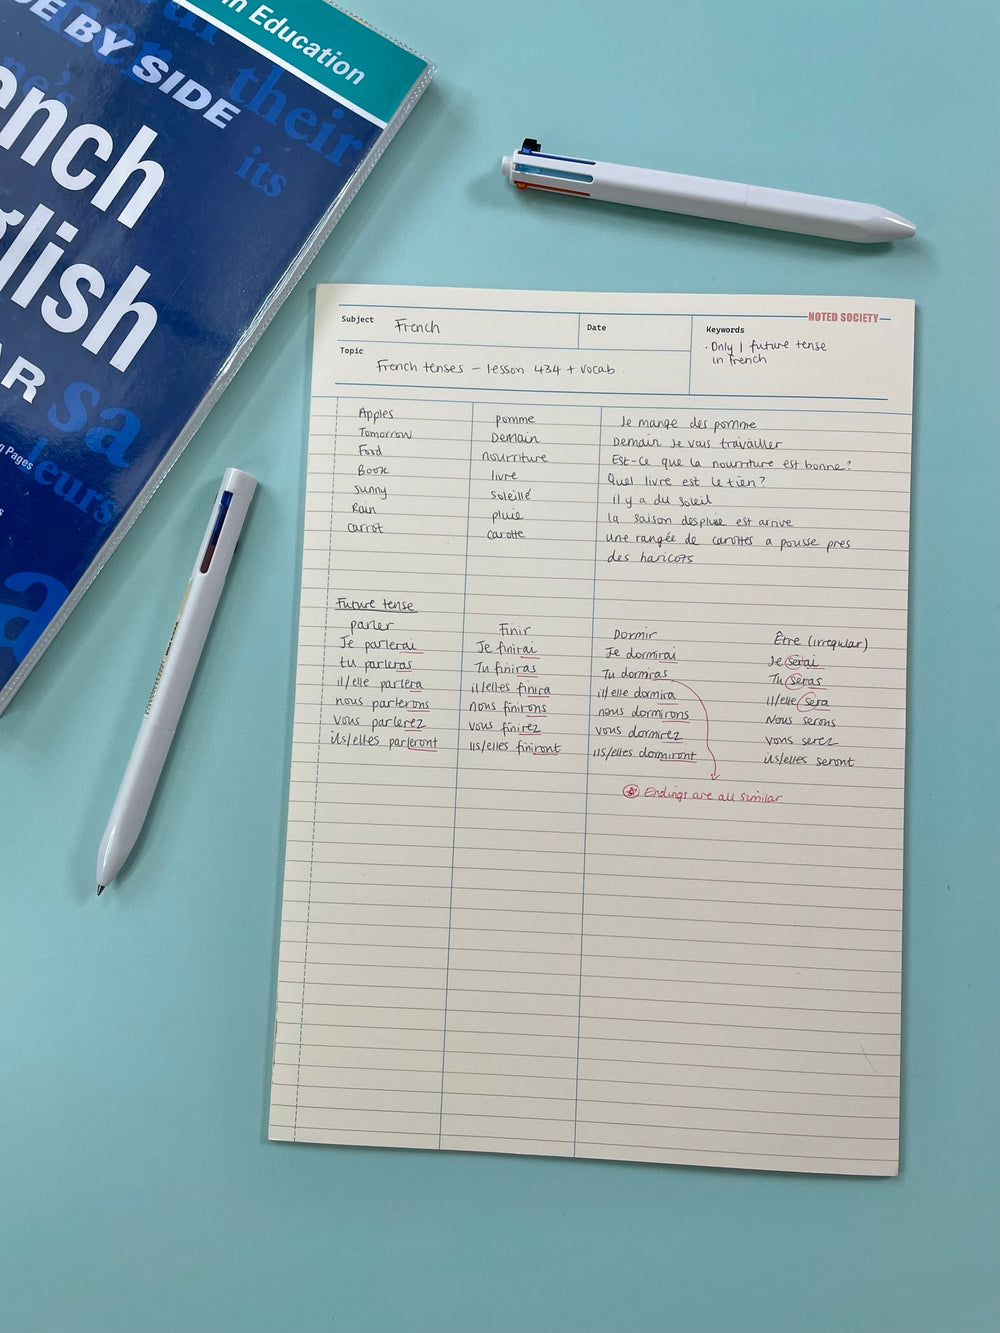 in Education
their
its
BY SIDE
sa
leurs
g Pages
NOTED SOCIETY
Subject French
Date
Keywords
· Only 1 future tense
in french
Topic
French tenses – lesson 434 + vocab
Apples pomme Je mange des pomme
Tomorrow Demain Demain Je vais travailler
Food nourriture Est-ce que la nourriture est bonne?
Book livre Quel livre est le tien?
Sunny soleillé il y a du soleil
Rain pluie la saison des pluie est arrive
carrot carotte une rangée de carottes a pousse pres
des haricots
Future tense
parler Finir Dormir Être (irregular)
Je parlerai Je finirai Je dormirai Je serai
tu parleras Tu finiras Tu dormiras Tu seras
il/elle parlera il/elles finira il/elle dormira il/elle sera
nous parlerons nous finirons nous dormirons Nous serons
vous parlerez vous finirez vous dormirez vous serez
ils/elles parleront ils/elles finiront ils/elles dormiront ils/elles seront
Endings are all similar